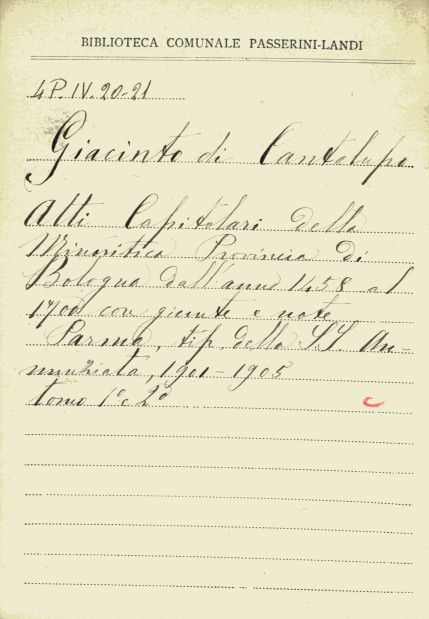 BIBLIOTECA COMUNALE PASSERINI-LANDI
4P.IV.20-21
Giacinto di Cantalupo
Atti Capitolari della
Minoritica Provincia di
Bologna dall'anno 1458 al
1700 con giunte e note
Parma, tip. della SS. An-
nunziata, 1901-1905
tomo 1º e 2º